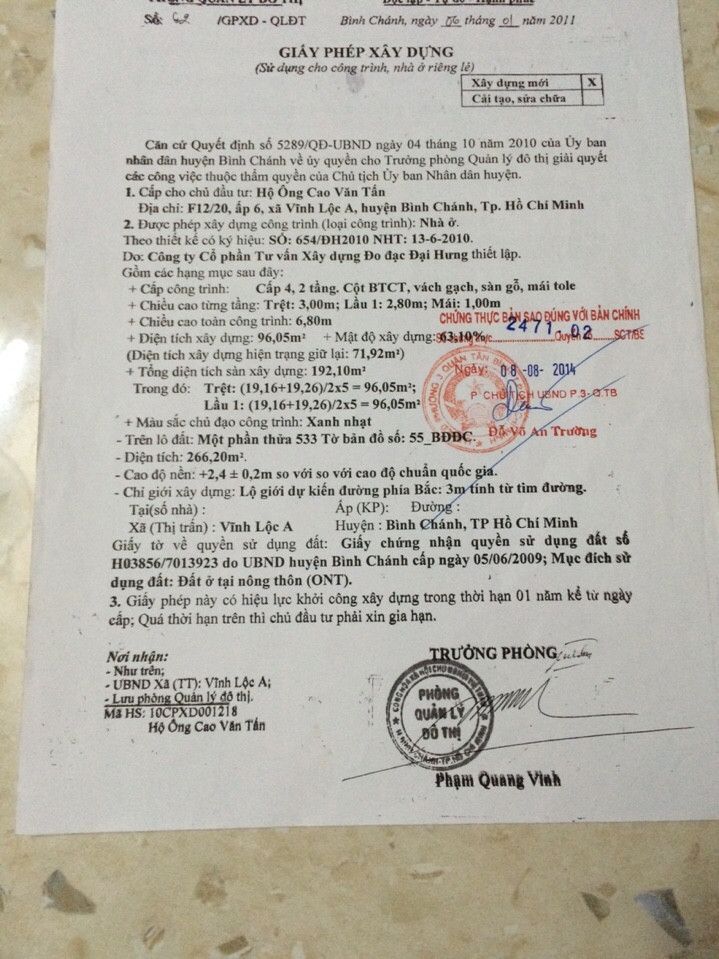 PHÒNG QUẢN LÝ ĐÔ THỊ
Độc lập - Tự do - Hạnh phúc
Số: 62 /GPXD - QLĐT
Bình Chánh, ngày 06 tháng 01 năm 2011
GIẤY PHÉP XÂY DỰNG
(Sử dụng cho công trình, nhà ở riêng lẻ)
Xây dựng mới X
Cải tạo, sửa chữa
Căn cứ Quyết định số 5289/QĐ-UBND ngày 04 tháng 10 năm 2010 của Ủy ban
nhân dân huyện Bình Chánh về ủy quyền cho Trưởng phòng Quản lý đô thị giải quyết
các công việc thuộc thẩm quyền của Chủ tịch Ủy ban Nhân dân huyện.
1. Cấp cho chủ đầu tư: Hộ Ông Cao Văn Tấn
Địa chỉ: F12/20, ấp 6, xã Vĩnh Lộc A, huyện Bình Chánh, Tp. Hồ Chí Minh
2. Được phép xây dựng công trình (loại công trình): Nhà ở.
Theo thiết kế có ký hiệu: SỐ: 654/ĐH2010 NHT: 13-6-2010.
Do: Công ty Cổ phần Tư vấn Xây dựng Đo đạc Đại Hưng thiết lập.
Gồm các hạng mục sau đây:
+ Cấp công trình: Cấp 4, 2 tầng. Cột BTCT, vách gạch, sàn gỗ, mái tole
+ Chiều cao từng tầng: Trệt: 3,00m; Lầu 1: 2,80m; Mái: 1,00m
+ Chiều cao toàn công trình: 6,80m
CHỨNG THỰC BẢN SAO ĐÚNG VỚI BẢN CHÍNH
+ Diện tích xây dựng: 96,05m² + Mật độ xây dựng: 63,10%
2471.02
Quyển số SCT/BS
(Diện tích xây dựng hiện trạng giữ lại: 71,92m²)
Ngày: 08-08-2014
+ Tổng diện tích sàn xây dựng: 192,10m²
Trong đó: Trệt: (19,16+19,26)/2x5 = 96,05m²;
P. CHỦ TỊCH UBND P.3-Q.TB
Lầu 1: (19,16+19,26)/2x5 = 96,05m²
+ Màu sắc chủ đạo công trình: Xanh nhạt
Đỗ Võ An Trường
- Trên lô đất: Một phần thửa 533 Tờ bản đồ số: 55_BĐĐC.
- Diện tích: 266,20m².
- Cao độ nền: +2,4 ± 0,2m so với so với cao độ chuẩn quốc gia.
- Chỉ giới xây dựng: Lộ giới dự kiến đường phía Bắc: 3m tính từ tim đường.
Tại(số nhà) : Ấp (KP): Đường :
Xã (Thị trấn) : Vĩnh Lộc A Huyện : Bình Chánh, TP Hồ Chí Minh
Giấy tờ về quyền sử dụng đất: Giấy chứng nhận quyền sử dụng đất số
H03856/7013923 do UBND huyện Bình Chánh cấp ngày 05/06/2009; Mục đích sử
dụng đất: Đất ở tại nông thôn (ONT).
3. Giấy phép này có hiệu lực khởi công xây dựng trong thời hạn 01 năm kể từ ngày
cấp; Quá thời hạn trên thì chủ đầu tư phải xin gia hạn.
Nơi nhận:
- Như trên;
- UBND Xã (TT): Vĩnh Lộc A;
- Lưu phòng Quản lý đô thị.
Mã HS: 10CPXD001218
Hộ Ông Cao Văn Tấn
TRƯỞNG PHÒNG
PHÒNG
QUẢN LÝ
ĐÔ THỊ
Phạm Quang Vinh